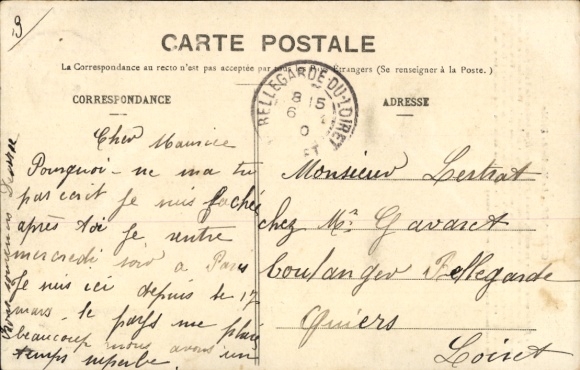 CARTE POSTALE
La Correspondance au recto n'est pas acceptée par tous les Pays Etrangers (Se renseigner à la Poste.)
CORRESPONDANCE
ADRESSE
BELLEGARDE-DU-LOIRET
8 15
6
Cher Maurice
Pourquoi - ne ma tu
pas ecrit Je suis fachée
après toi Je rentre
mercredi soir a Paris
Je suis ici depuis le 17
mars. le pays me plais
beaucoup nous avons un
temps superbe
Monsieur Lestrat
chez Mr Gavaret
boulanger Bellegarde
Quiers
Loiret